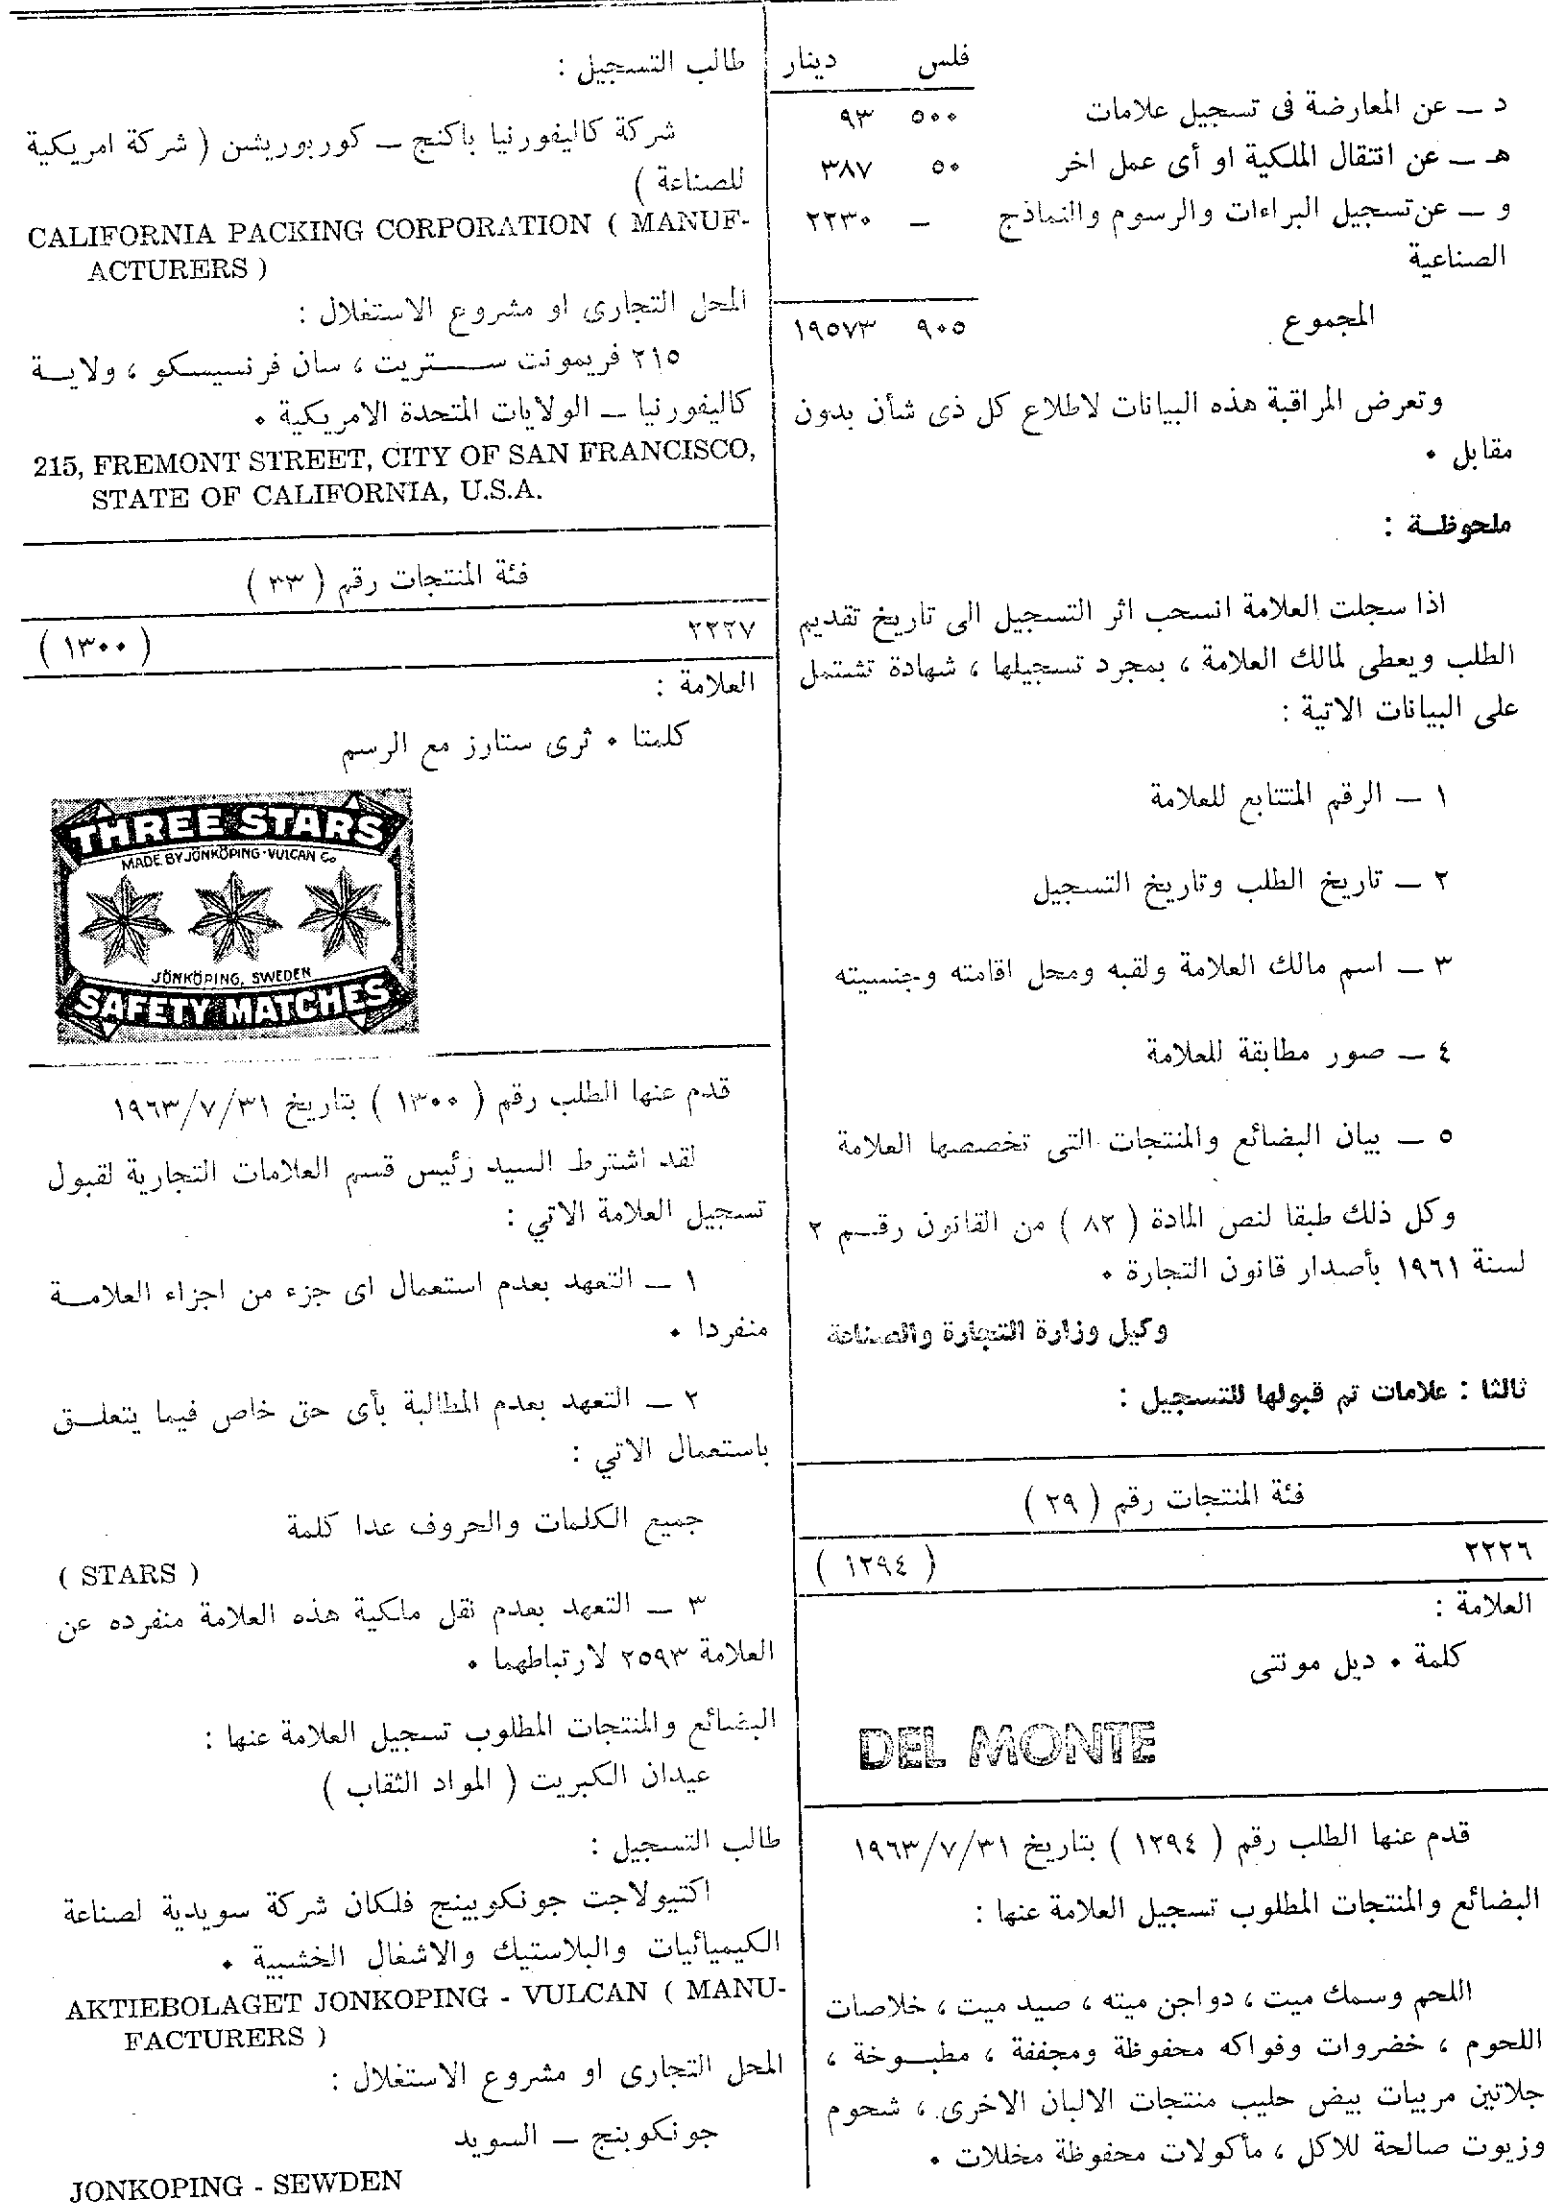 فلس دينار
د — عن المعارضة فى تسجيل علامات ٥٠٠ ٩٣
هـ — عن انتقال الملكية او أى عمل اخر ٥٠ ٣٨٧
و — عن تسجيل البراءات والرسوم والنماذج — ٢٢٣٠
الصناعية
المجموع ٩٠٥ ١٩٥٧٣
وتعرض المراقبة هذه البيانات لاطلاع كل ذى شأن بدون
مقابل ٠
ملحوظــة :
اذا سجلت العلامة انسحب اثر التسجيل الى تاريخ تقديم
الطلب ويعطى لمالك العلامة ، بمجرد تسجيلها ، شهادة تشتمل
على البيانات الاتية :
١ — الرقم المتتابع للعلامة
٢ — تاريخ الطلب وتاريخ التسجيل
٣ — اسم مالك العلامة ولقبه ومحل اقامته وجنسيته
٤ — صور مطابقة للعلامة
٥ — بيان البضائع والمنتجات التى تخصصها العلامة
وكل ذلك طبقا لنص المادة ( ٨٢ ) من القانون رقــم ٢
لسنة ١٩٦١ بأصدار قانون التجارة ٠
وكيل وزارة التجارة والصناعة
ثالثا : علامات تم قبولها للتسجيل :
فئة المنتجات رقم ( ٢٩ )
٢٢٢٦ ( ١٢٩٤ )
العلامة :
كلمة ٠ ديل مونتى
DEL MONTE
قدم عنها الطلب رقم ( ١٢٩٤ ) بتاريخ ١٩٦٣/٧/٣١
البضائع والمنتجات المطلوب تسجيل العلامة عنها :
اللحم وسمك ميت ، دواجن ميته ، صيد ميت ، خلاصات
اللحوم ، خضروات وفواكه محفوظة ومجففة ، مطبــوخة ،
جلاتين مربيات بيض حليب منتجات الالبان الاخرى ، شحوم
وزيوت صالحة للاكل ، مأكولات محفوظة مخللات ٠
طالب التسجيل :
شركة كاليفورنيا باكنج — كوربوريشن ( شركة امريكية
للصناعة )
CALIFORNIA PACKING CORPORATION ( MANUF-
ACTURERS )
المحل التجارى او مشروع الاستغلال :
٢١٥ فريمونت ســـتريت ، سان فرنسيسكو ، ولايــة
كاليفورنيا — الولايات المتحدة الامريكية ٠
215, FREMONT STREET, CITY OF SAN FRANCISCO,
STATE OF CALIFORNIA, U.S.A.
فئة المنتجات رقم ( ٣٣ )
٢٢٢٧ ( ١٣٠٠ )
العلامة :
كلمتا ٠ ثرى ستارز مع الرسم
THREE STARS
MADE BY JÖNKÖPING-VULCAN Co
JÖNKÖPING, SWEDEN
SAFETY MATCHES
قدم عنها الطلب رقم ( ١٣٠٠ ) بتاريخ ١٩٦٣/٧/٣١
لقد اشترط السيد رئيس قسم العلامات التجارية لقبول
تسجيل العلامة الاتي :
١ — التعهد بعدم استعمال اى جزء من اجزاء العلامــة
منفردا ٠
٢ — التعهد بعدم المطالبة بأى حق خاص فيما يتعلــق
باستعمال الاتي :
جميع الكلمات والحروف عدا كلمة
( STARS )
٣ — التعهد بعدم نقل ملكية هذه العلامة منفرده عن
العلامة ٢٥٩٣ لارتباطهما ٠
البضائع والمنتجات المطلوب تسجيل العلامة عنها :
عيدان الكبريت ( المواد الثقاب )
طالب التسجيل :
اكتيولاجت جونكوبينج فلكان شركة سويدية لصناعة
الكيميائيات والبلاستيك والاشغال الخشبية ٠
AKTIEBOLAGET JONKOPING - VULCAN ( MANU-
FACTURERS )
المحل التجارى او مشروع الاستغلال :
جونكوبنج — السويد
JONKOPING - SEWDEN